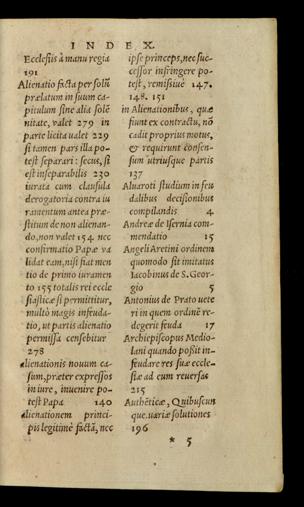 INDEX.
Ecclesiis à manu regia
191
Alienatio facta per solũ
prælatum in suum ca-
pitulum sine alia solẽ
nitate, valet 279 in
parte licita ualet 229
si tamen pars illa po-
test separari: secus, si
est inseparabilis 230
iurata cum clausula
derogatoria contra iu
ramentum antea præ-
stitum de non alienan-
do, non valet 154. nec
confirmatio Papæ va
lidat eam, nisi fiat men
tio de primo iuramen
to 155 totalis rei eccle
siasticæ si permittitur,
multò magis infeuda-
tio, ut partis alienatio
permissa censebitur
278
alienationis nouum ca-
sum, præter expressos
in iure, inuenire po-
test Papa 140
alienationem princi-
pis legitimè factã, nec
ipse princeps, nec suc-
cessor infringere po-
test, remissiuè 147.
148. 151
in Alienationibus, quæ
fiunt ex contractu, nõ
cadit proprius motus,
& requirunt consen-
sum utriusque partis
137
Aluaroti studium in feu
dalibus decisionibus
compilandis 4
Andreæ de Isernia com-
mendatio 15
Angeli Aretini ordinem
quomodo sit imitatus
Iacobinus de S. Geor-
gio 5
Antonius de Prato uete
ri in quem ordinẽ re-
degerit feuda 17
Archiepiscopus Medio-
lani quando possit in-
feudare res suæ eccle-
siæ ad eum reuersas
215
Authẽticæ, Quibuscun
que. uariæ solutiones
196
* 5